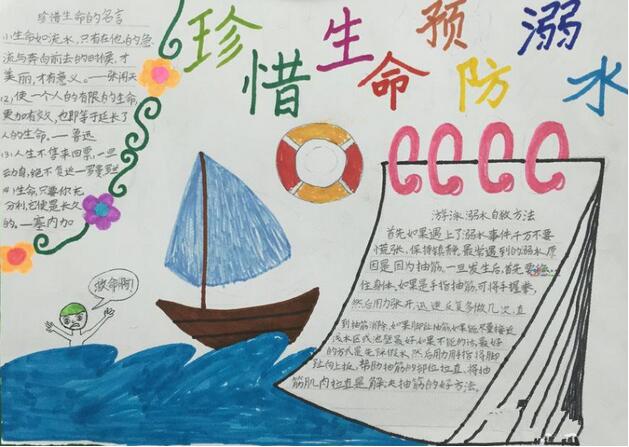 珍惜生命 预防溺水
珍惜生命的名言
(1)生命如流水,只有在他的急
流与奔向前去的时候,才
美丽,才有意义。—张闻天
(2)使一个人的有限的生命,
更加有效,也即等于延长了
人的生命。—鲁迅
(3)人生不售来回票,一旦
动身,绝不复返—罗曼
(4)生命,只要你充
分利,它便是长久
的。—塞内加
救命啊!
游泳溺水自救方法
首先如果遇上了溺水事件千万不要
慌张,保持镇静,最常遇到的溺水原
因是因为抽筋,一旦发生后,首先
住身体,如果是手指抽筋,可将手握拳,
然后用力张开,迅速反复多做几次,直
到抽筋消除,如果脚趾抽筋如果能尽量接近
浅水区或池壁最好如果不能的话,最好
的方式是先深假水,然后用力用手指将脚
趾向上扳,帮助抽筋的部位拉直,将抽
筋肌肉拉直是解决抽筋的好方法。